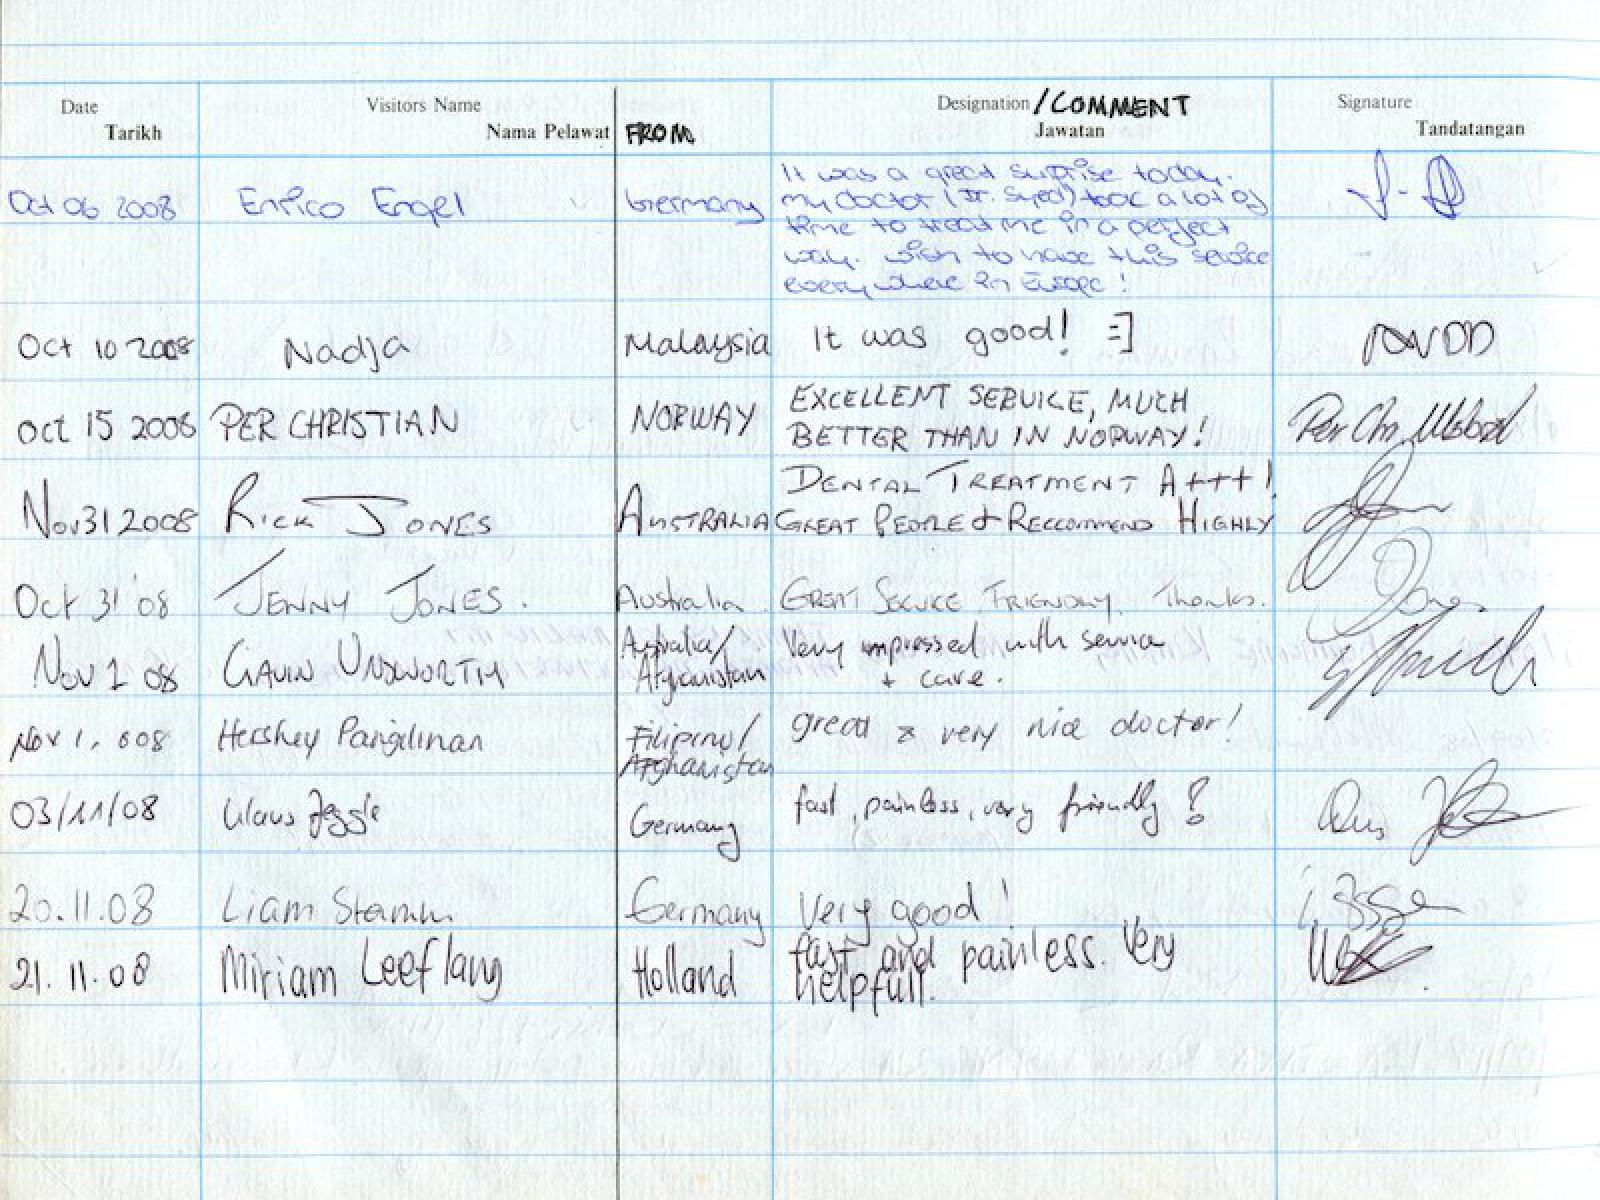 Date Visitors Name Designation /COMMENT Signature
Tarikh Nama Pelawat FROM Jawatan Tandatangan
Oct 06 2008 Enrico Engel Germany It was a great surprise today.
my doctor (Dr. Syed) took a lot of
time to treat me in a perfect
way. wish to have this service
everywhere in Europe!
Oct 10 2008 Nadja Malaysia It was good! =]
Oct 15 2008 PER CHRISTIAN NORWAY EXCELLENT SERVICE, MUCH
BETTER THAN IN NORWAY!
Nov 31 2008 Rick JONES AUSTRALIA DENTAL TREATMENT A+++!
GREAT PEOPLE & RECCOMMEND HIGHLY
Oct 31 '08 JENNY JONES. Australia. GREAT SERVICE FRIENDLY. Thanks.
Nov 1 08 GAVIN UNSWORTH Australia/ Very impressed with service
Afghanistan + care.
Nov 1, 008 Hershey Pangilinan Filipino/ great & very nice doctor!
Afghanistan
03/11/08 Klaus Germany fast, painless, very friendly!
20.11.08 Liam Stamm Germany Very good!
21.11.08 Miriam Leeflang Holland fast and painless. Very
helpfull.